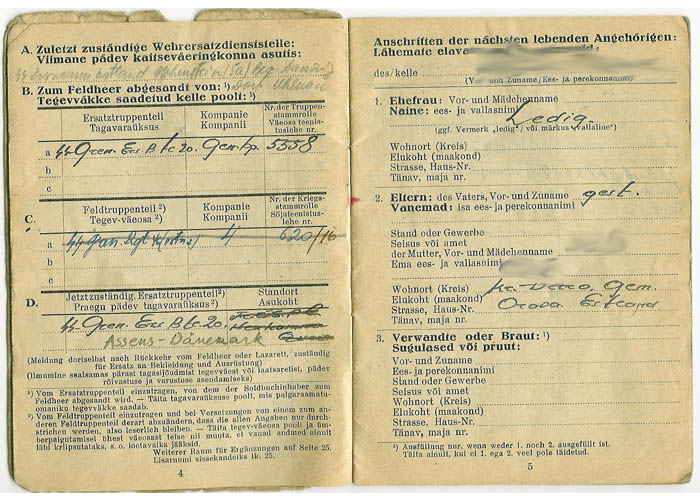 A. Zuletzt zuständige Wehrersatzdienststelle:
Viimane pädev kaitseväeringkonna asutis:
SS Estland
B. Zum Feldheer abgesandt von: ¹)
Tegevväkke saadetud kelle poolt: ¹)
Ersatztruppenteil
Tagavaraüksus
Kompanie
Kompanii
Nr. der Truppen-
stammrolle
Väeosa teenis-
tuslehe nr.
a SS Gren. Ers Btl 20. Gen. Kp. 5558
b
c
C.
Feldtruppenteil ²)
Tegev-väeosa ²)
Kompanie
Kompanii
Nr. der Kriegs-
stammrolle
Sõjateenistus-
lehe nr.
a 4 620/16
b
c
D.
Jetzt zuständig. Ersatztruppenteil ²)
Praegu pädev tagavaraüksus ²)
Standort
Asukoht
SS Gren. Ers Btl 20.
Assens - Dänemark
(Meldung dortselbst nach Rückkehr vom Feldheer oder Lazarett, zuständig
für Ersatz an Bekleidung und Ausrüstung)
(Ilmumine sealsamas pärast tagasijõudmist tegevväest või laatsaretist, pädev
rõivastuse ja varustuse asendamiseks)
¹) Vom Ersatztruppenteil einzutragen, von dem der Soldbuchinhaber zum
Feldheer abgesandt wird. — Täita tagavaraüksuse poolt, mis palgaraamatu-
omaniku tegevväkke saadab.
²) Vom Feldtruppenteil einzutragen und bei Versetzungen von einem zum an-
deren Feldtruppenteil derart abzuändern, dass die alten Angaben nur durch-
strichen werden, also leserlich bleiben. — Täita tegev-väeosa poolt ja üm-
berpaigutamisel ühest väeosast teise nii muuta, et vanad andmed ainult
läbi kriipsutataks, s. o. loetavaiks jääksid.
Weiterer Raum für Ergänzungen auf Seite 25.
Lisaruumi sissekandeiks lk. 25.
4
Anschriften der nächsten lebenden Angehörigen:
Lähemate elava
des/kelle
(V und Zuname/Ees- ja perekonnanimi)
1. Ehefrau: Vor- und Mädchenname
Naine: ees- ja vallasnimi
Ledig.
(ggf. Vermerk „ledig"/ või märkus „vallaline")
Wohnort (Kreis)
Elukoht (maakond)
Strasse, Haus-Nr.
Tänav, maja nr.
2. Eltern: des Vaters, Vor- und Zuname gest.
Vanemad: isa ees- ja perekonnanimi
Stand oder Gewerbe
Seisus või amet
der Mutter, Vor- und Mädchenname
Ema ees- ja vallasnimi
Wohnort (Kreis) Gem.
Elukoht (maakond)
Strasse, Haus-Nr. Estland
Tänav, maja nr.
3. Verwandte oder Braut: ¹)
Sugulased või pruut:
Vor- und Zuname
Ees- ja perekonnanimi
Stand oder Gewerbe
Seisus või amet
Wohnort (Kreis)
Elukoht (maakond)
Strasse, Haus-Nr.
Tänav, maja nr.
¹) Ausfüllung nur, wenn weder 1. noch 2. ausgefüllt ist.
Täita ainult, kui ei 1. ega 2. veel pole täidetud.
5